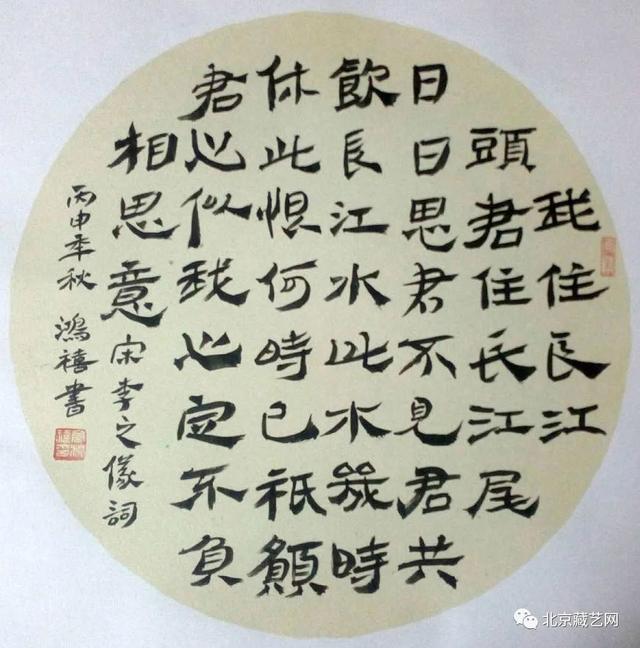 我住長江
頭君住長江尾
日日思君不見君共
飲長江水此水幾時
休此恨何時已祇願
君心似我心定不負
相思意 宋李之儀詞
丙申秊秋 鴻禧書
北京藏艺网